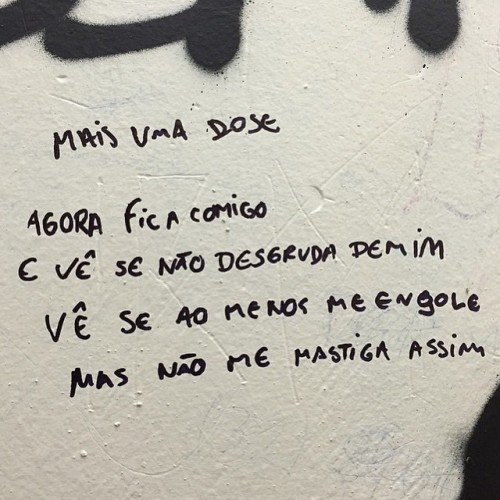 MAIS UMA DOSE
AGORA FICA COMIGO
E VÊ SE NÃO DESGRUDA DE MIM
VÊ SE AO MENOS ME ENGOLE
MAS NÃO ME MASTIGA ASSIM